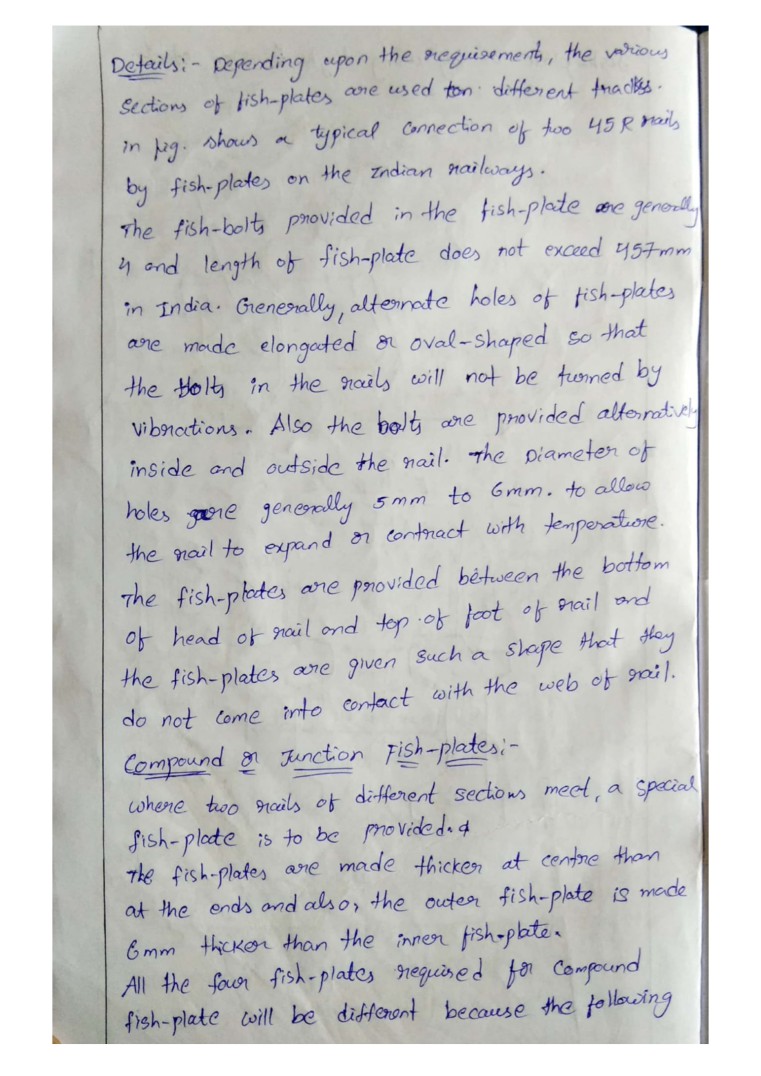 Details:- Depending upon the requirements, the various
sections of fish-plates are used for different tracks.
in fig. shows a typical connection of two 45 R rails
by fish-plates on the Indian railways.
The fish-bolts provided in the fish-plate are generally
4 and length of fish-plate does not exceed 457mm
in India. Generally, alternate holes of fish-plates
are made elongated or oval-shaped so that
the bolts in the rails will not be turned by
vibrations. Also the bolts are provided alternatively
inside and outside the rail. The Diameter of
holes are generally 5mm to 6mm. to allow
the rail to expand or contract with temperature.
The fish-plates are provided between the bottom
of head of rail and top of foot of rail and
the fish-plates are given such a shape that they
do not come into contact with the web of rail.
Compound or Junction Fish-plates:-
where two rails of different sections meet, a special
fish-plate is to be provided.
The fish-plates are made thicker at centre than
at the ends and also, the outer fish-plate is made
6mm thicker than the inner fish-plate.
All the four fish-plates required for Compound
fish-plate will be different because the following